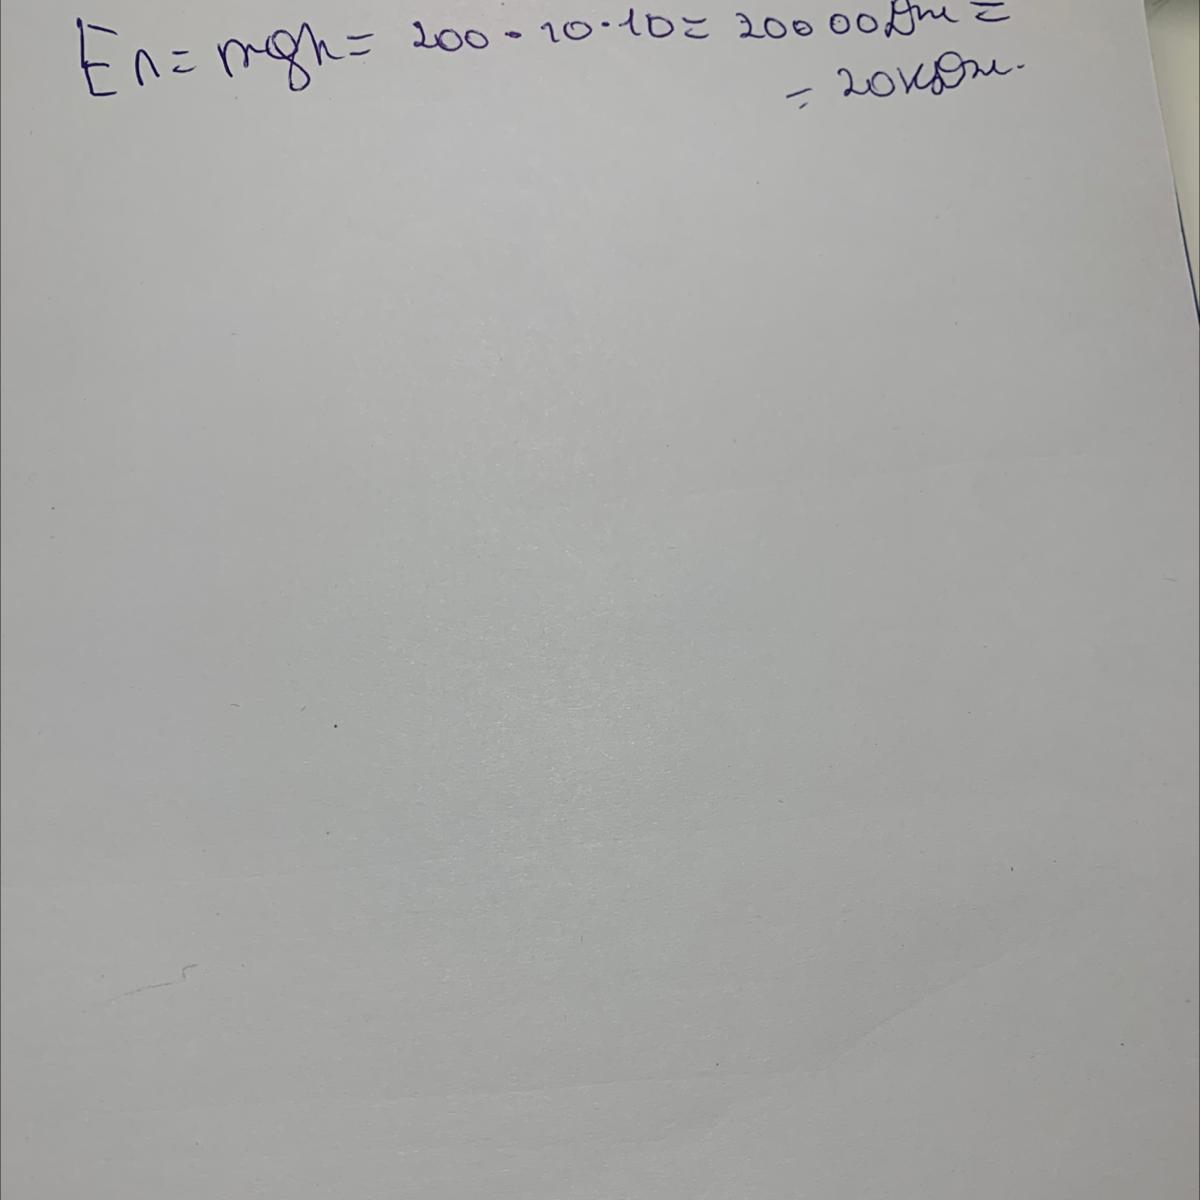 Eп = mgh = 200 · 10 · 10 = 20000Дж =
= 20кДж.